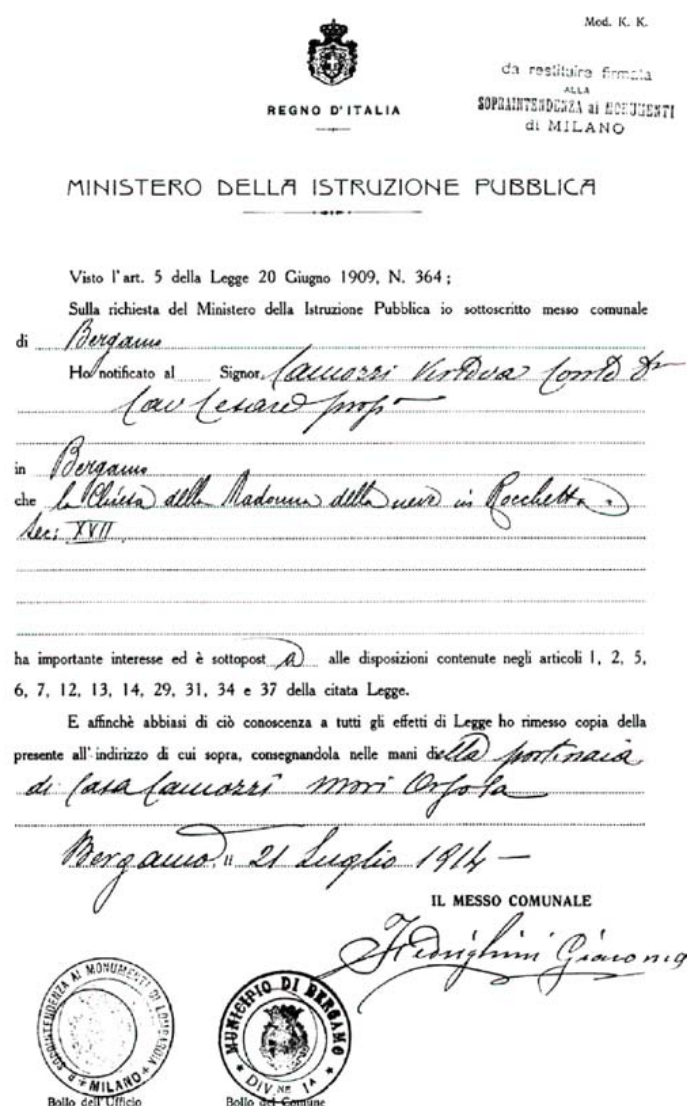 Mod. K. K.
da restituire firmata
ALLA
SOPRAINTENDENZA ai MONUMENTI
di MILANO
REGNO D'ITALIA
MINISTERO DELLA ISTRUZIONE PUBBLICA
Visto l'art. 5 della Legge 20 Giugno 1909, N. 364;
Sulla richiesta del Ministero della Istruzione Pubblica io sottoscritto messo comunale
di Bergamo
Ho notificato al Signor Camozzi Vertova Conte Dr
Cav Cesare propº
in Bergamo
che la Chiesa della Madonna della neve in Rocchetta
Sec: XVII
ha importante interesse ed è sottoposta alle disposizioni contenute negli articoli 1, 2, 5,
6, 7, 12, 13, 14, 29, 31, 34 e 37 della citata Legge.
E affinchè abbiasi di ciò conoscenza a tutti gli effetti di Legge ho rimesso copia della
presente all'indirizzo di cui sopra, consegnandola nelle mani della portinaia
di Casa Camozzi Mori Orsola
Bergamo, li 21 Luglio 1914 —
IL MESSO COMUNALE
Fedrighini Giacomo
R. SOPRINTENDENZA AI MONUMENTI DI LOMBARDIA
MILANO
MUNICIPIO DI BERGAMO
DIV.NE 1ª
Bollo dell'Ufficio
Bollo del Comune